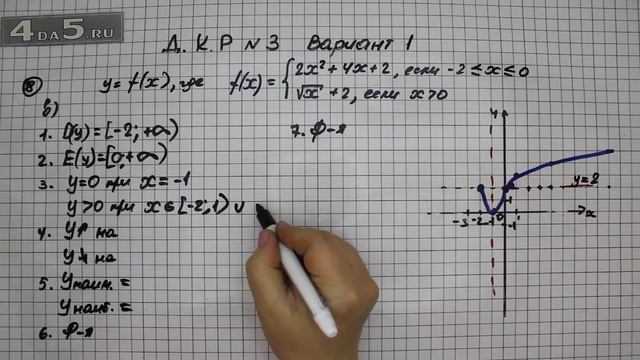 4DA5.RU
Д.К.Р №3 Вариант 1
⑧ y=f(x), где f(x)= { 2x²+4x+2, если -2≤x≤0
√x+2, если x>0
в)
1. D(y)=[-2;+∞)
7. Ф-я
2. E(y)=[0;+∞)
3. y=0 при x=-1
y>0 при x∈[-2;1)∪
4. y↑ на
y↓ на
5. yнаим. =
yнаиб. =
6. Ф-я
y
y=2
-3 -2 -1 0 1 x